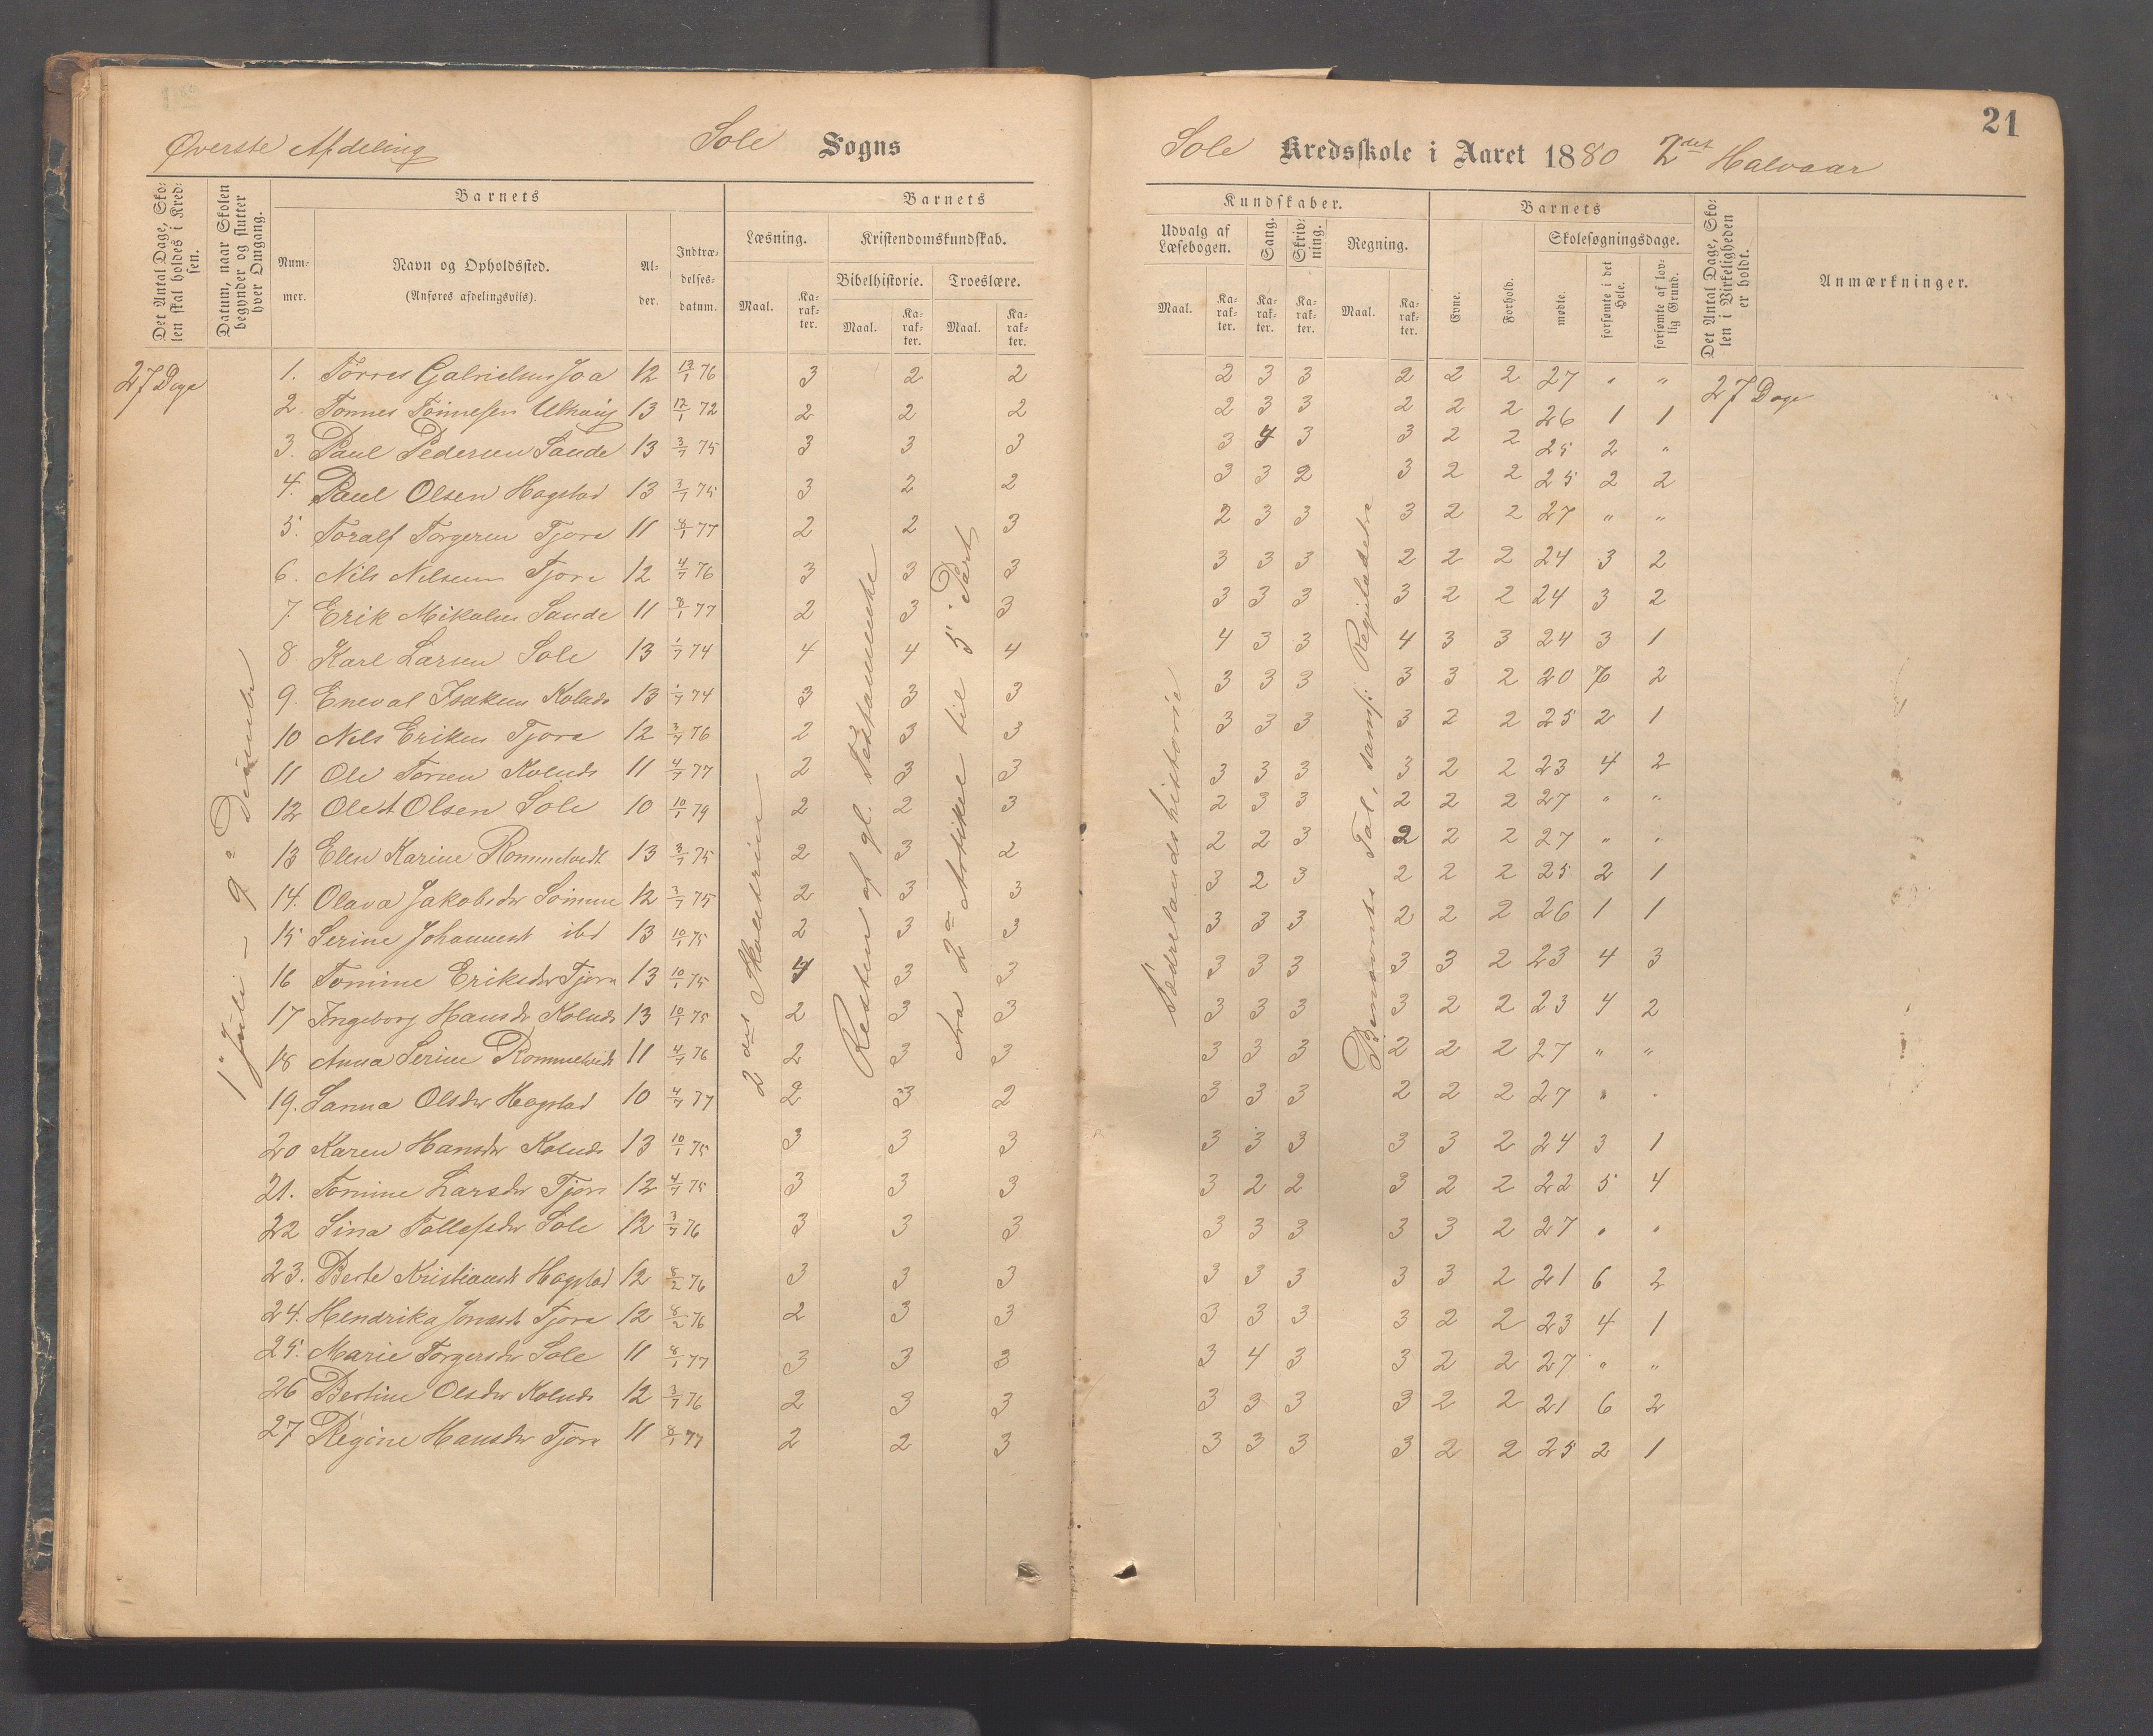 21
Øverste Afdeling Sole Sogns
Sole Kredsskole i Aaret 1880 2det Halvaar
Det Antal Dage, Skolen skal holdes i Kredsen.
Datum, naar Skolen begynder og slutter hver Omgang.
Barnets
Nummer.
Navn og Opholdssted.
(Anføres afdelingsviis).
Alder.
Indtrædelsesdatum.
Barnets
Læsning.
Kristendomskundskab.
Bibelhistorie.
Troeslære.
Maal.
Karakter.
Maal.
Karakter.
Maal.
Karakter.
Kundskaber.
Udvalg af Læsebogen.
Sang.
Skrivning.
Regning.
Maal.
Karakter.
Karakter.
Karakter.
Maal.
Karakter.
Barnets
Evne.
Forhold.
Skolesøgningsdage.
mødte.
forsømte i det Hele.
forsømte af lovlig Grund.
Det Antal Dage, Skolen i Virkeligheden er holdt.
Anmærkninger.
27 Dage
27 Dage
2det Skoletrin
Resten af gl. Testamente
fra 2n Artikel til 5 Part
Fædrelandshistorie
Benævnte Tal, samt
1. Torres Gabrielsen Joa 12 13/1 76 3 2 2 2 3 3 2 2 2 27 " "
2. Tønnes Tønnesen 13 12/1 72 2 2 2 2 3 3 2 2 2 26 1 1
3. Paul Pedersen Sande 13 3/7 75 3 3 3 3 4 3 3 2 2 25 2 "
4. Paul Olsen Hogstad 13 3/7 75 3 2 2 3 3 2 3 2 2 25 2 2
5. Toralf Torgersen Tjora 11 8/1 77 2 2 3 2 3 3 3 2 2 27 " "
6. Nils Nilsen Tjora 12 4/7 76 3 3 3 3 3 3 2 2 2 24 3 2
7. Erik Mikalsen Sande 11 8/1 77 2 3 3 3 3 3 3 2 2 24 3 2
8 Karl Larsen Sole 13 1/7 74 4 4 4 4 3 3 4 3 3 24 3 1
9. Eneval Isaksen Kolnds 13 1/7 74 3 3 3 3 3 3 3 3 2 20 7 2
10 Nils Eriksen Tjora 12 3/7 76 2 3 3 3 3 3 3 2 2 25 2 1
11 Ole Torsen Kolnds 11 4/7 77 2 3 3 3 3 3 3 2 2 23 4 2
12 Ole A Olsen Sole 10 10/1 79 2 2 3 2 3 3 2 2 2 27 " "
13 Elen Karine Rommetvedt 13 3/7 75 2 3 2 2 2 3 2 2 2 27 " "
14. Olava Jakobsdr Sømme 12 3/7 75 2 3 3 3 2 3 2 2 2 25 2 1
15 Serine Johannesdt ibd 13 10/1 75 2 3 3 3 3 3 2 2 2 26 1 1
16 Tomine Eriksdr Tjora 13 10/1 75 4 3 3 3 3 3 3 3 2 23 4 3
17 Ingeborg Hansdr Kolnds 13 10/1 75 2 3 3 3 3 3 3 2 2 23 4 2
18 Anna Serine Rommetvedt 11 4/7 76 2 3 3 3 3 3 2 2 2 27 " "
19. Sanna Olsdr Hogstad 10 4/7 77 2 3 2 3 3 3 2 2 2 27 " "
20 Karen Hansdr Kolnds 13 10/1 75 3 3 3 3 3 3 3 3 2 24 3 1
21. Tomine Larsdr Tjora 12 4/7 75 3 3 3 3 2 2 3 2 2 22 5 4
22 Sina Tollefsdr Sole 12 3/7 76 3 3 3 3 3 3 3 3 2 27 " "
23. Berte Kristiansdt Hogstad 12 8/2 76 3 3 3 3 3 3 3 3 2 21 6 2
24. Hendrika Jonasdt Tjora 12 8/2 76 2 3 3 3 3 3 3 2 2 23 4 1
25. Marie Torgersdr Sole 11 8/1 77 3 3 3 3 4 3 3 2 2 27 " "
26 Bertine Olsdr Kolnds 12 3/7 76 2 3 3 3 3 3 3 2 2 21 6 2
27 Regine Hansdr Tjora 11 8/1 77 2 2 3 3 3 3 3 2 2 25 2 1